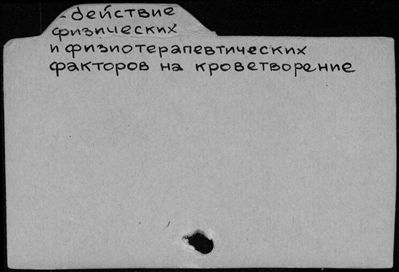 - действие
физических
и физиотерапевтических
факторов на кроветворение